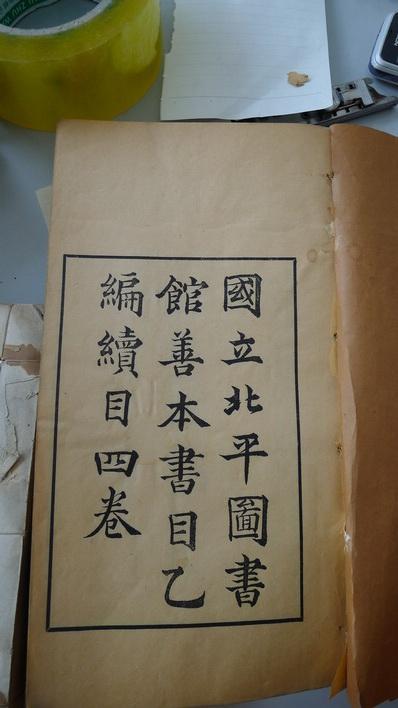 國立北平圖書
館善本書目乙
編續目四卷